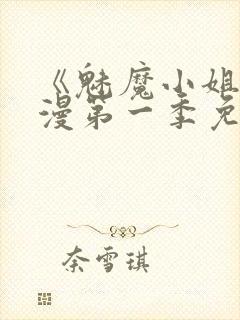 《魅魔小姐
漫第一季免
奈雪琪